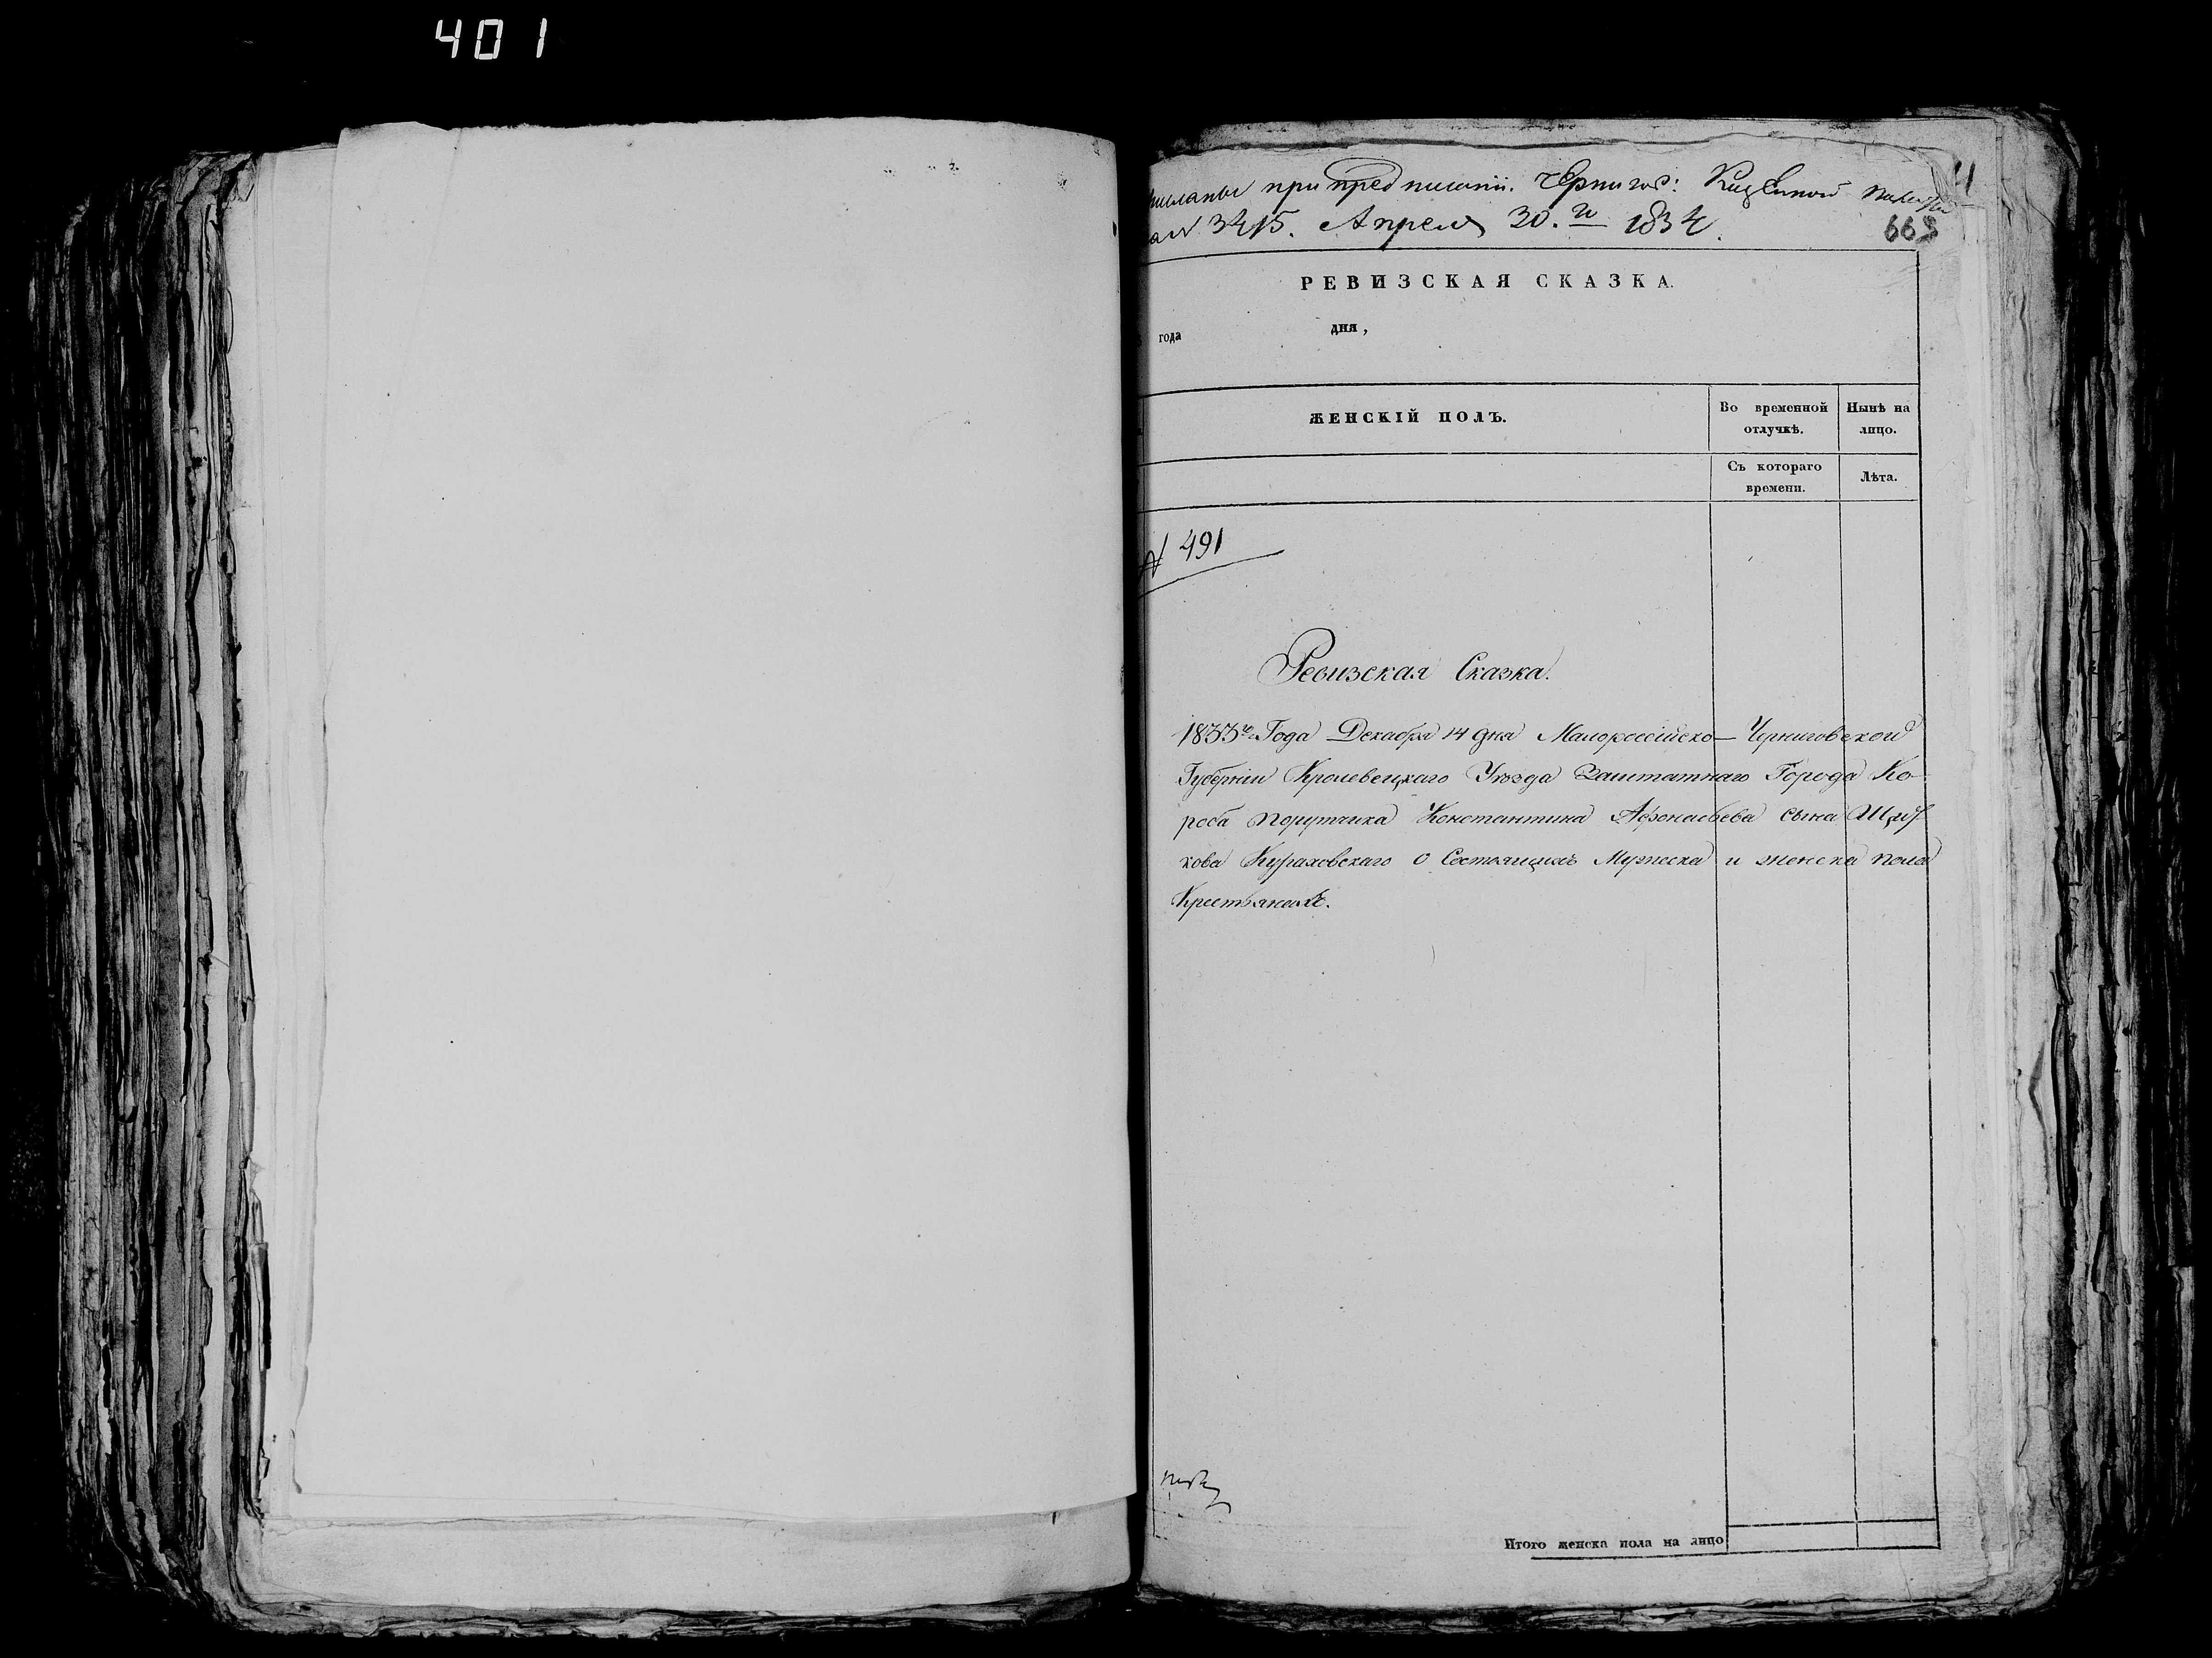 401
при предписаніи. Чернигов: Казенной палаты
3415. Апреля 30.го 1834.
668
РЕВИЗСКАЯ СКАЗКА.
года дня,
ЖЕНСКІЙ ПОЛЪ.
Во временной отлучкѣ.
Нынѣ на лицо.
Съ котораго времени.
Лѣта.
№ 491
Ревизская Сказка.
1833го Года Декабря 14 дня Малороссійско-Черниговской
Губерніи Кролевецкаго Уезда Заштатнаго Города Ко-
роба Порутчика Константина Афонасьева сына
кова Кураховскаго о Состоящихъ Мужеска и женска пола
Крестьянахъ.
Итого женска пола на лицо